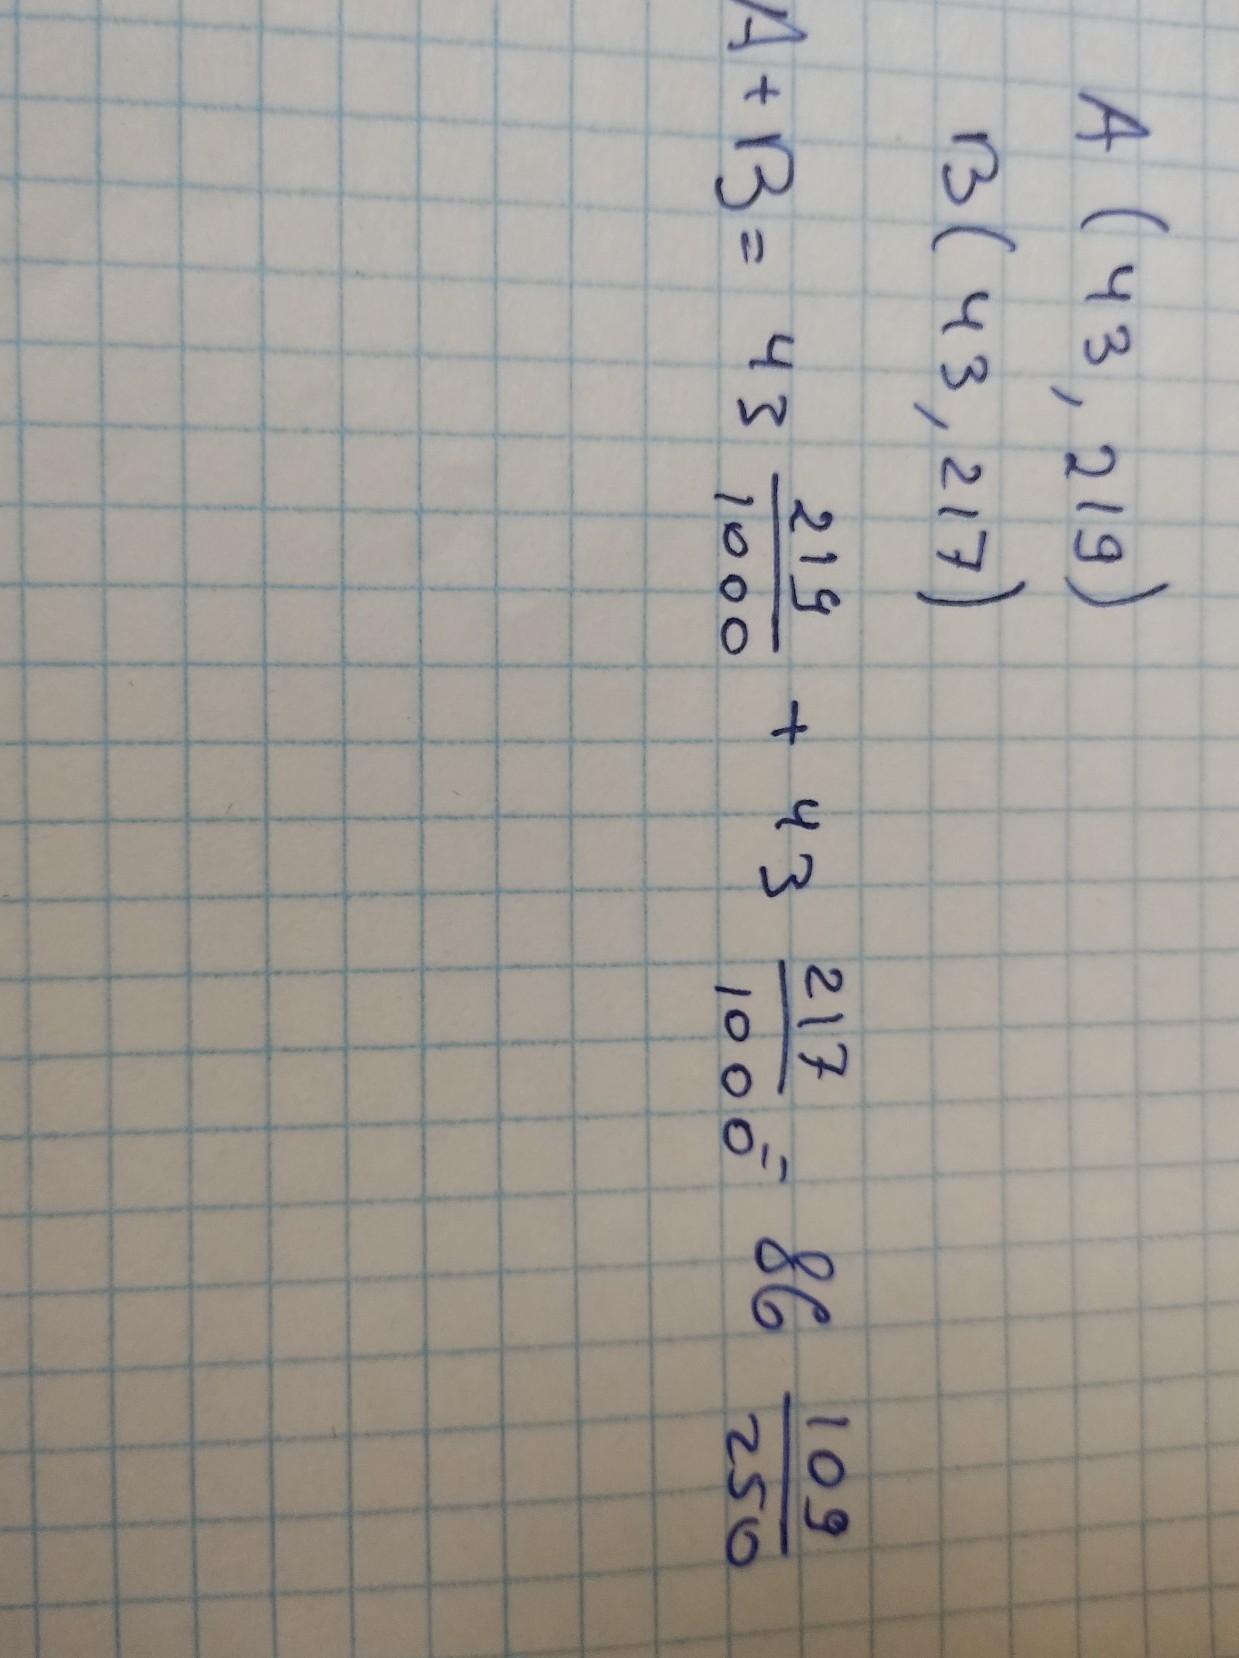 A (43,219)
B (43,217)
A+B = 43 219/1000 + 43 217/1000 = 86 109/250